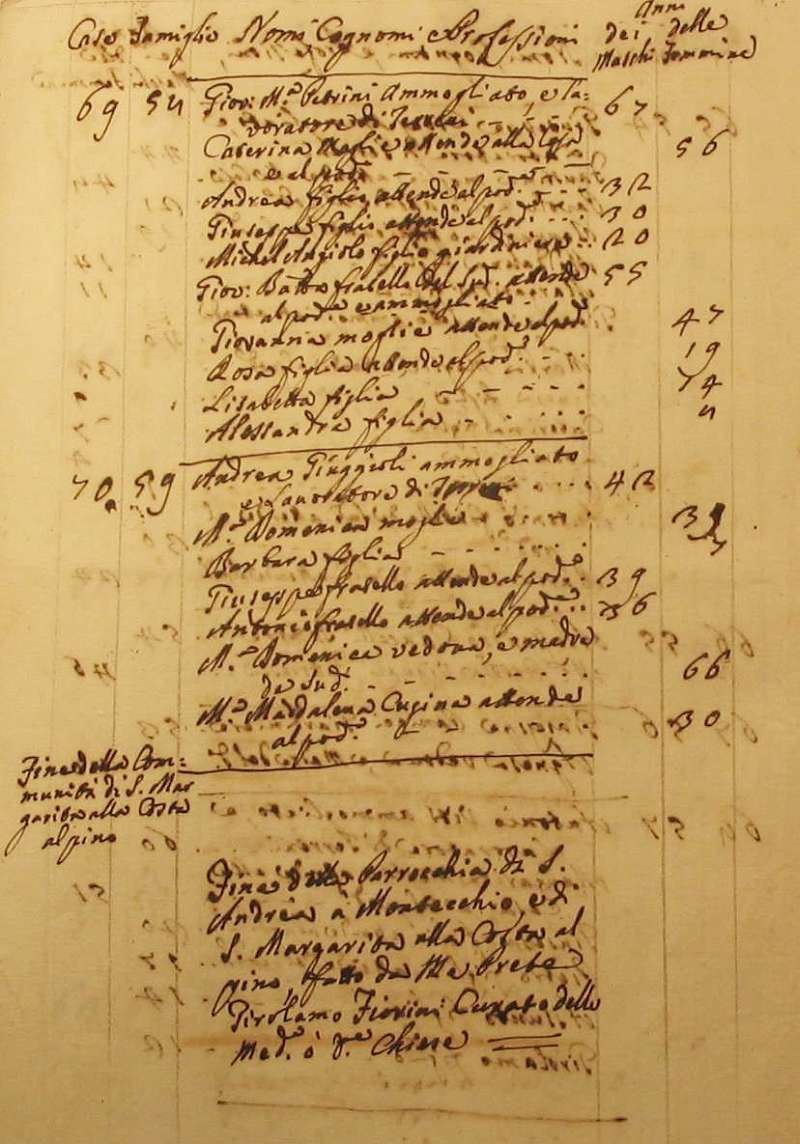 Case Famiglie Nomi Cognomi e Professioni Anni
dei delle
Maschi Femmine
69 54 Giov: M.a Petrini Ammogliato, e la= 67
voratore di Terreni
Caterina Moglie attende alla Casa 56
e al pod.e
Andrea figlio attende al pod.e 32
Giuseppe figlio attende al pod.e 30
Michel Angiolo figlio giardiniere 20
Giov: Batta fratello del Sud.o attende 55
al pod.e e ammogliato
Giovanna moglie attende al pod.e 47
Rosa figlia attende al pod.e 19
Lisabetta figlia 14
Alessandra figlia
70 59 Andrea Piuggioli ammogliato 42
e lavoratore di Terreni
M.a Domenica moglie
Barbera figlia
Giuseppe fratello attende al pod.e 39
Antonio fratello attende al pod.e 36
M.a Domenica vedova, e madre 66
de Sud.i
M.a Maddalena Cugina attende 30
al pod.e
Fine della Com=
munità di S. Mar
garita alla Costa
al pino
Fine delle Parrocchia di S.
Andrea a Montecchio, e di
S. Margarita alla Costa al
pino, fatto da Me Prete
Girolamo Fiorini Curato delle
Med.e o d.e Chiese